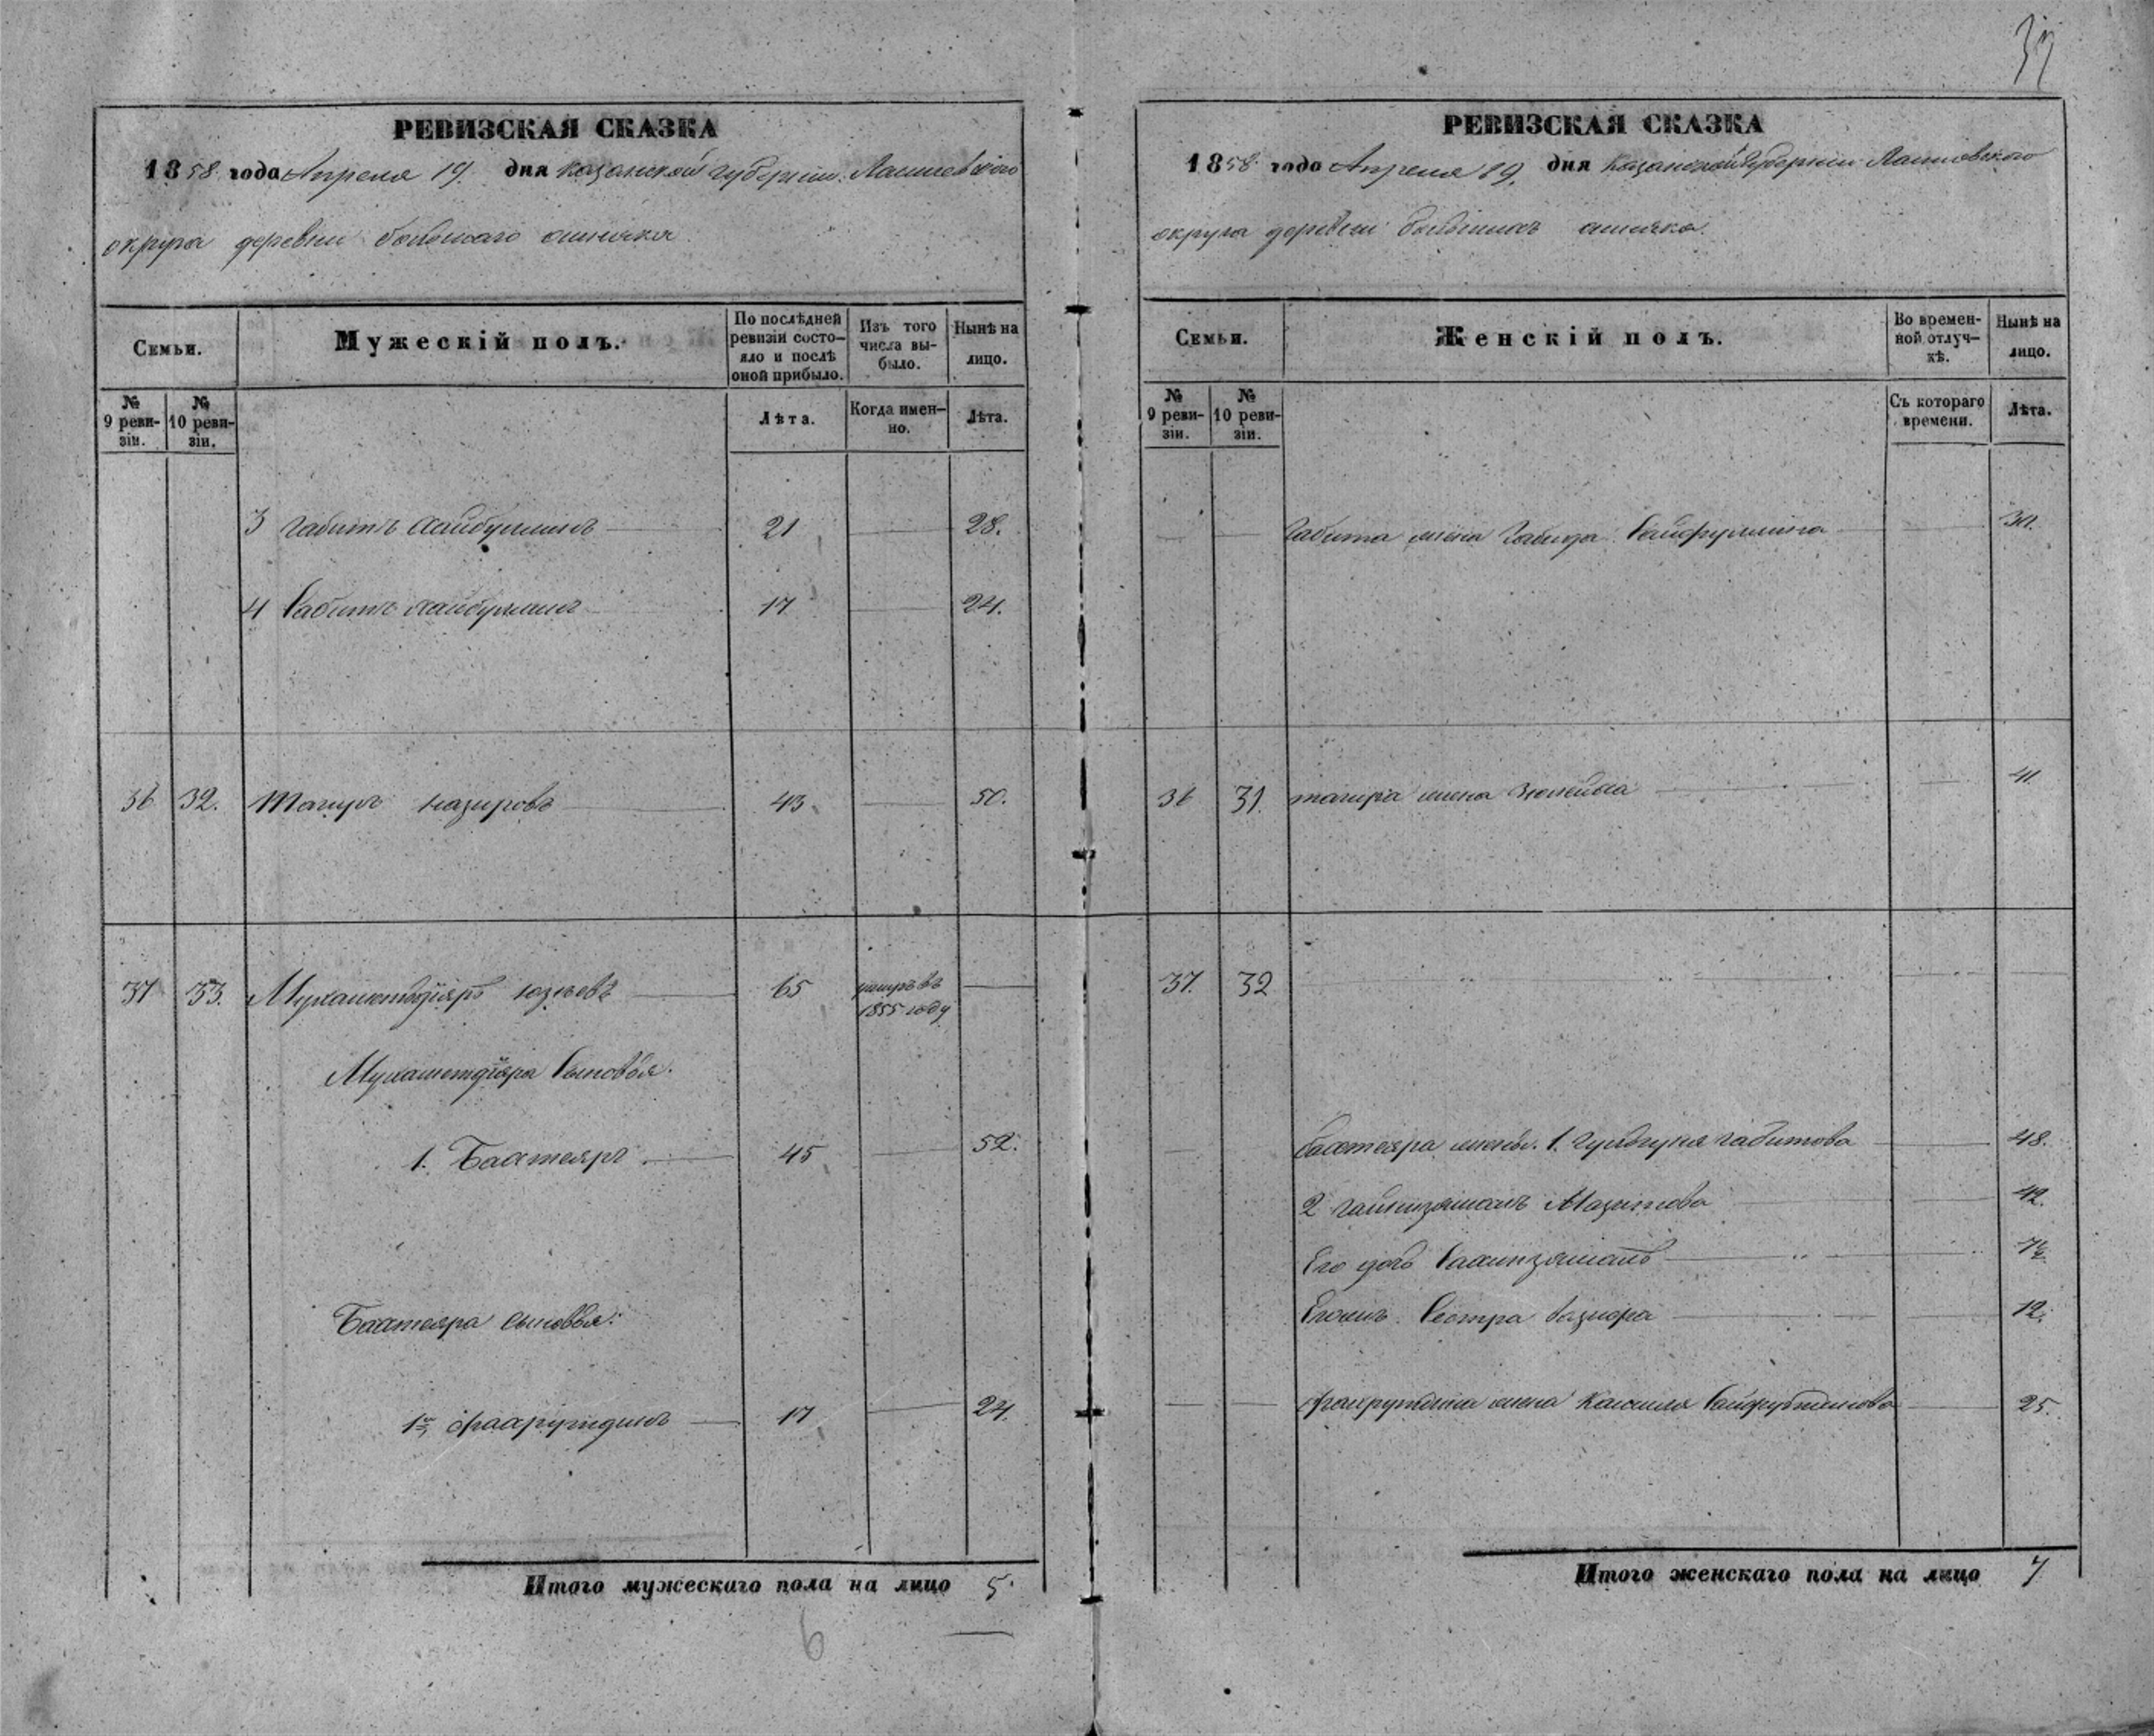 37
РЕВИЗСКАЯ СКАЗКА
1858 года Апреля 19. дня Казанской губернии Лаишевского
округа деревни большаго ошняка
Семьи.
Мужескій полъ.
По послѣдней ревизіи состояло и послѣ оной прибыло.
Изъ того числа выбыло.
Нынѣ на лицо.
№ 9 ревизіи.
№ 10 ревизіи.
Лѣта.
Когда именно.
Лѣта.
3 Габитъ Хайбуллинъ 21 28.
4 Сабитъ Хайбуллинъ 17 24.
36 32. Тагиръ Назировъ 43 50.
37 33. Мухаметдіяръ 65 умеръ въ 1855 году
Мухаметдіяра Сыновья.
1. Бахтеяръ 45 52.
Бахтеяра Сыновья:
1й Фахрутдинъ 17 24.
Итого мужескаго пола на лицо 5.
6
РЕВИЗСКАЯ СКАЗКА
1858 года Апреля 19. дня Казанской губернии Лаишевского
округа деревни ошняка.
Семьи.
Женскій полъ.
Во временной отлучкѣ.
Нынѣ на лицо.
№ 9 ревизіи.
№ 10 ревизіи.
Съ котораго времени.
Лѣта.
Габита жена Сайфуллина
36 31. тагира жена 41
37. 32
бахтеяра жены. 1. Габитова 48.
2 Мазитова 42.
Его дочь
Сестра 12.
Фахрутдина жена 25.
Итого женскаго пола на лицо 7